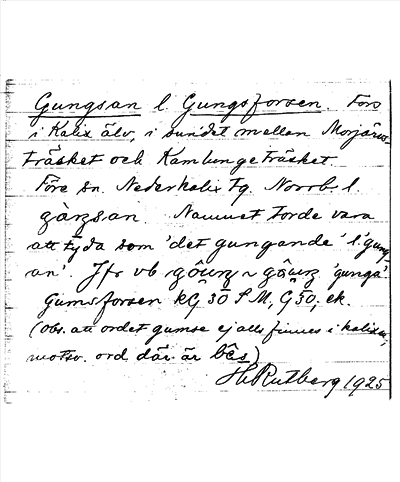 Gungsan l. Gungsforsen. Fors
i Kalix älv, i sundet mellan Morjärvs-
träsket och Kamlungeträsket.
Töre sn. Nederkalix tg. Norrb. l.
Namnet torde vara
att tyda som 'det gungande' l. 'gung-
an'. Jfr vb 'gunga'
Gumsforsen kG 30 SM, G 50, ek.
(obs. att ordet gumse ej alls finnes i kalixm,
motsv. ord där är bês)
H. Rutberg 1925